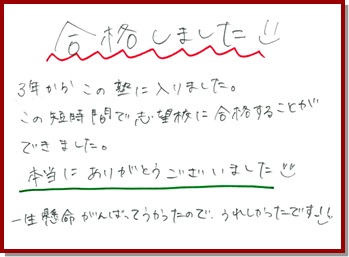 合格しました
3年からこの塾に入りました。
この短時間で志望校に合格することが
できました。
本当にありがとうございました
一生懸命がんばってうかったので、うれしかったです!!